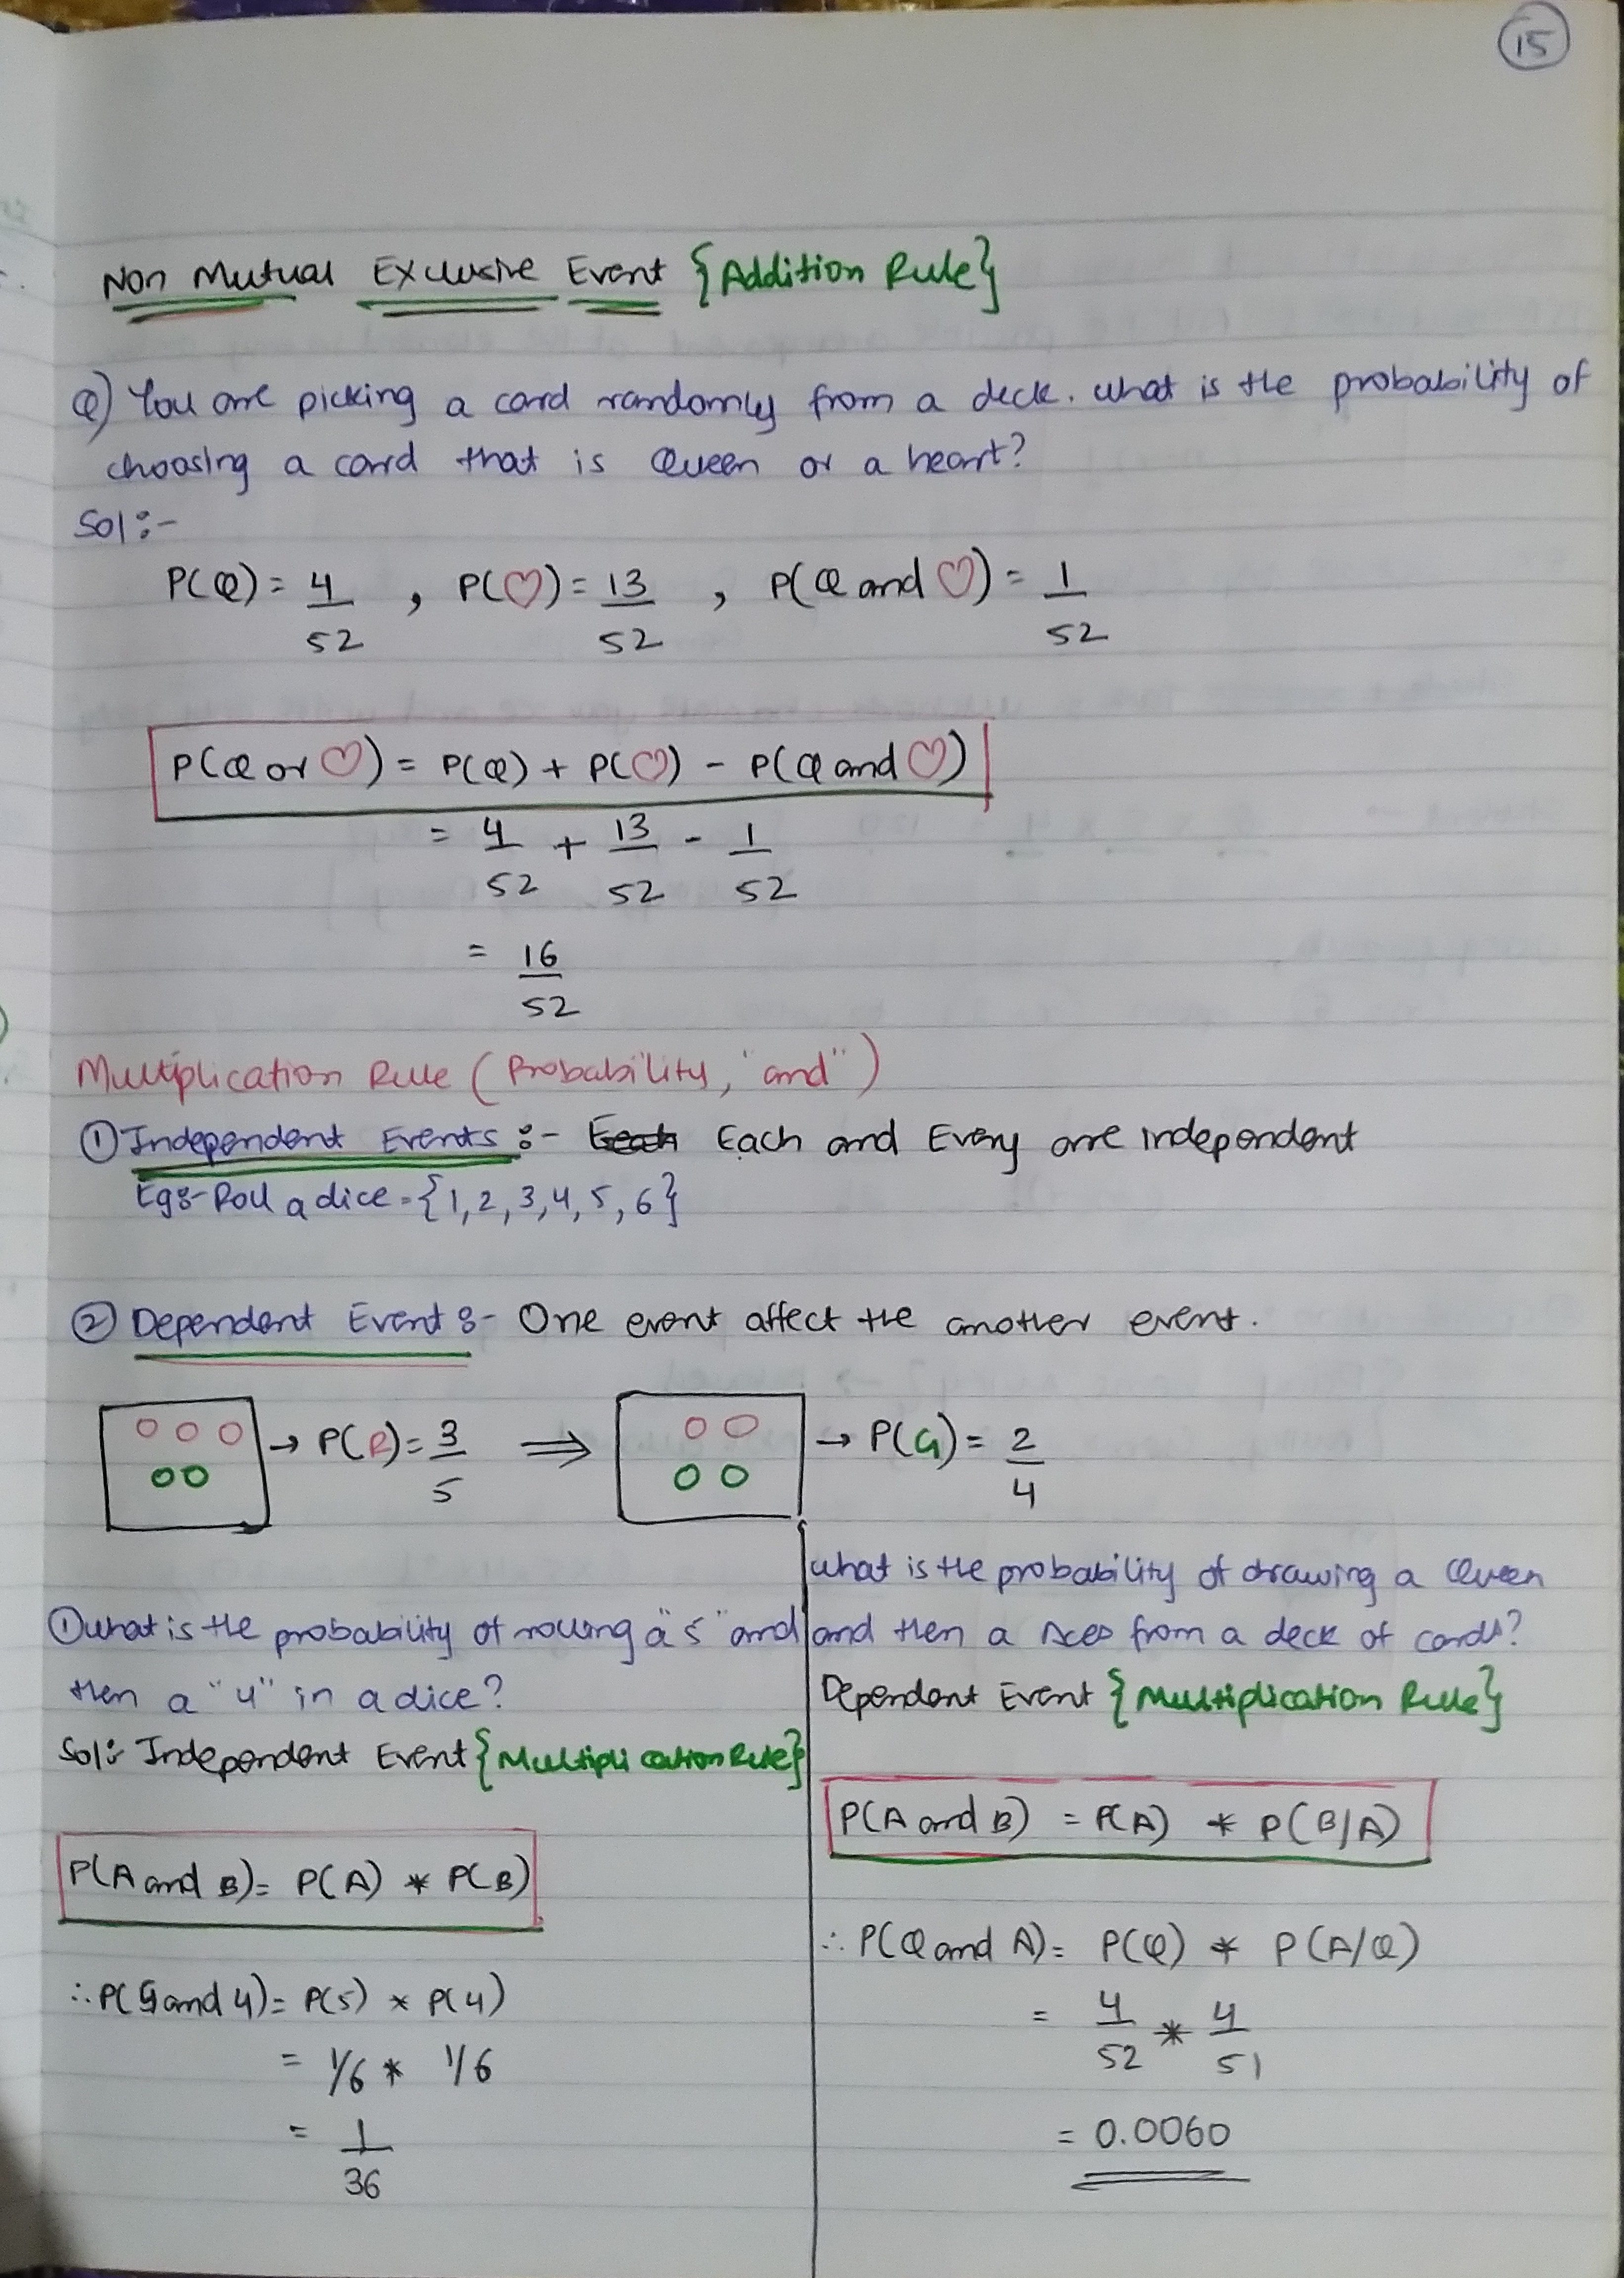 15
Non Mutual Exclusive Event {Addition Rule}
Q) You are picking a card randomly from a deck. what is the probability of
choosing a card that is Queen or a heart?
Sol:-
P(Q) = 4/52 , P(♡) = 13/52 , P(Q and ♡) = 1/52
P(Q or ♡) = P(Q) + P(♡) - P(Q and ♡)
= 4/52 + 13/52 - 1/52
= 16/52
Multiplication Rule (Probability, "and")
① Independent Events :- Each and Every are independent
Eg:- Roll a dice = {1, 2, 3, 4, 5, 6}
② Dependent Event :- One event affect the another event.
→ P(R) = 3/5 ⟹ → P(G) = 2/4
① what is the probability of rolling a "5" and
then a "4" in a dice?
Sol:- Independent Event {Multiplication Rule}
P(A and B) = P(A) * P(B)
∴ P(5 and 4) = P(5) * P(4)
= 1/6 * 1/6
= 1/36
what is the probability of drawing a Queen
and then a Aces from a deck of cards?
Dependent Event {Multiplication Rule}
P(A and B) = P(A) * P(B/A)
∴ P(Q and A) = P(Q) * P(A/Q)
= 4/52 * 4/51
= 0.0060